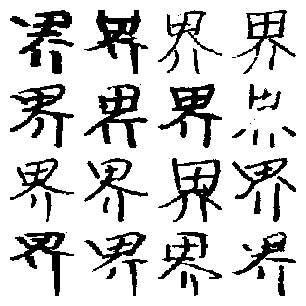 界界界界
界界界界
界界界界
界界界界